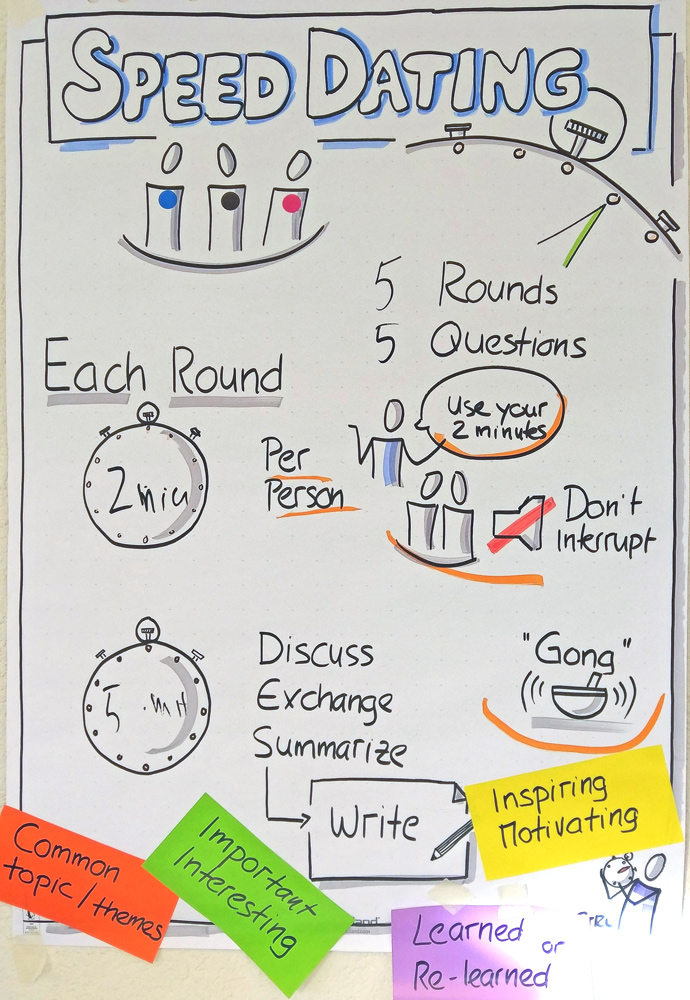 SPEED DATING
5 Rounds
5 Questions
Each Round
2 min
Per
Person
Use your
2 minutes
Don't
Interrupt
5 min
Discuss
Exchange
Summarize
"Gong"
Write
Inspiring
Motivating
Common
topic/themes
Important
Interesting
Learned or
Re-learned